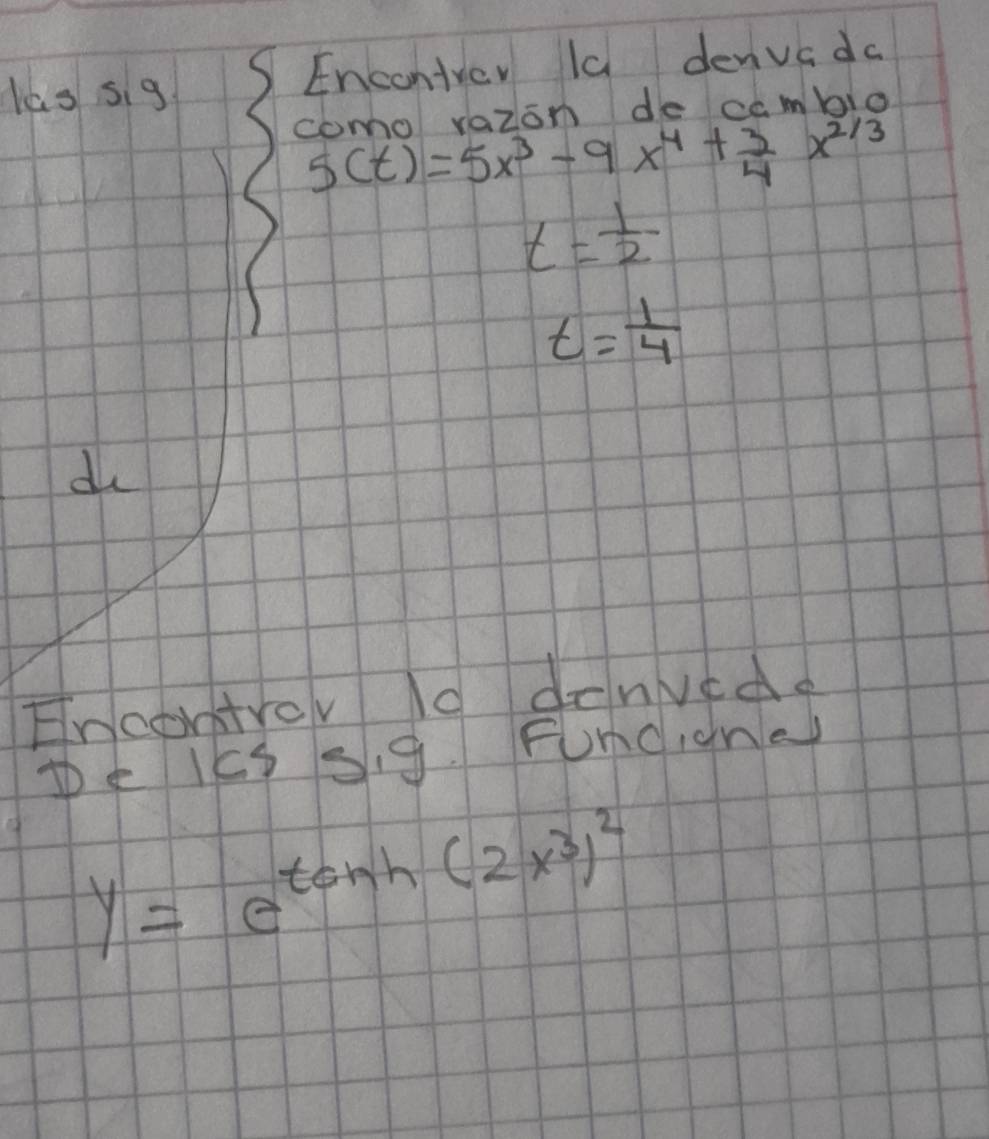 las sig
Encontrar la derivada
como razón de cambio
S(t) = 5x³ - 9x⁴ + 3/4 x^2/3
t = 1/2
t = 1/4
de
Encontrar la derivada
De las sig. Funciones
y = e^tanh (2x³)²